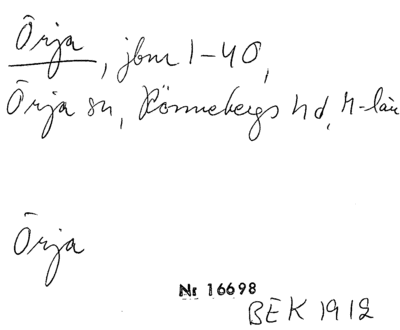 Örja, jbm 1-40,
Örja sn, Rönnebergs hd, M-län
Örja
Nr 16698
BEK 1912